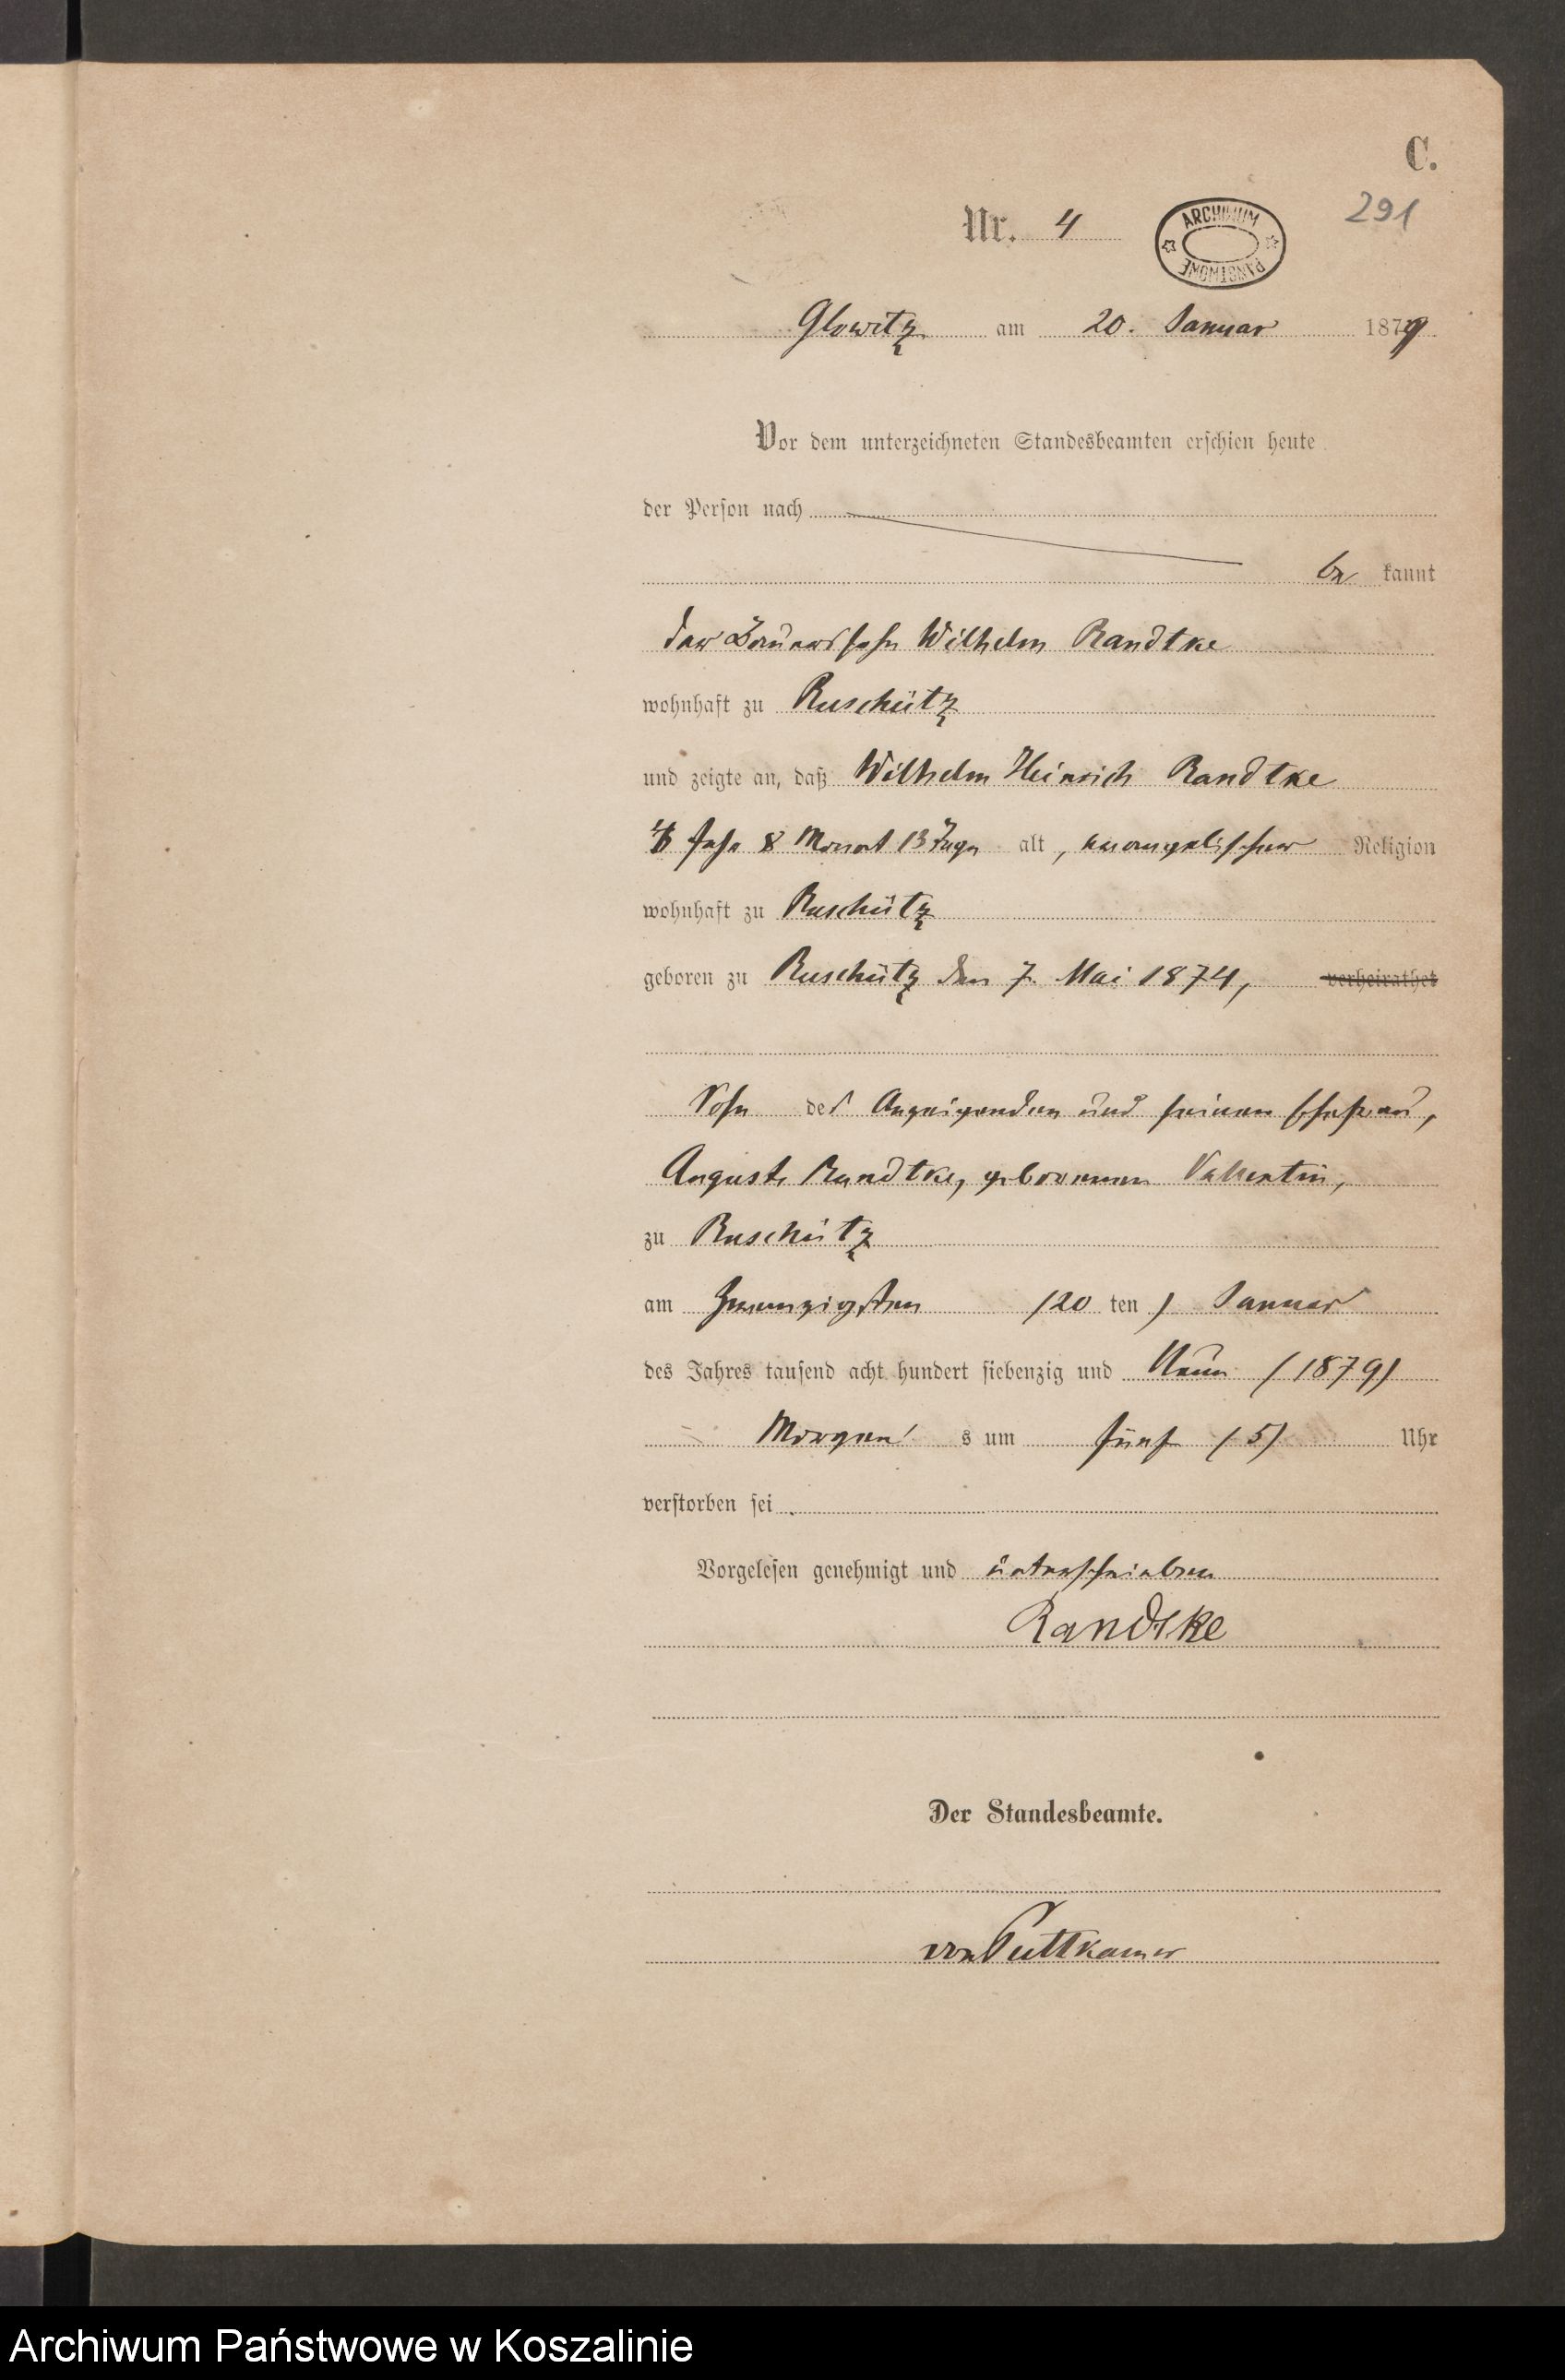 C.
291
Nr. 4
ARCHIWUM PAŃSTWOWE
Glowitz am 20. Januar 1879
Vor dem unterzeichneten Standesbeamten erschien heute
der Person nach
be kannt
der Bauerssohn Wilhelm Randtke
wohnhaft zu Ruschütz
und zeigte an, daß Wilhelm Heinrich Randtke
4 Jahr 8 Monat 13 Tage alt, evangelischer Religion
wohnhaft zu Ruschütz
geboren zu Ruschütz den 7. Mai 1874, verheirathet
Sohn des Anzeigenden und seiner Ehefrau,
Auguste Randtke, geborenen Vallentin,
zu Ruschütz
am zwanzigsten (20 ten) Januar
des Jahres tausend acht hundert siebenzig und Neun (1879)
Morgen s um fünf (5) Uhr
verstorben sei.
Vorgelesen genehmigt und unterschrieben
Randtke
Der Standesbeamte.
von Puttkamer
Archiwum Państwowe w Koszalinie